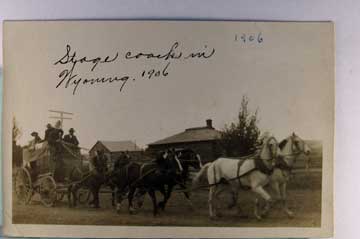 1906
Stage coach in
Wyoming. 1906